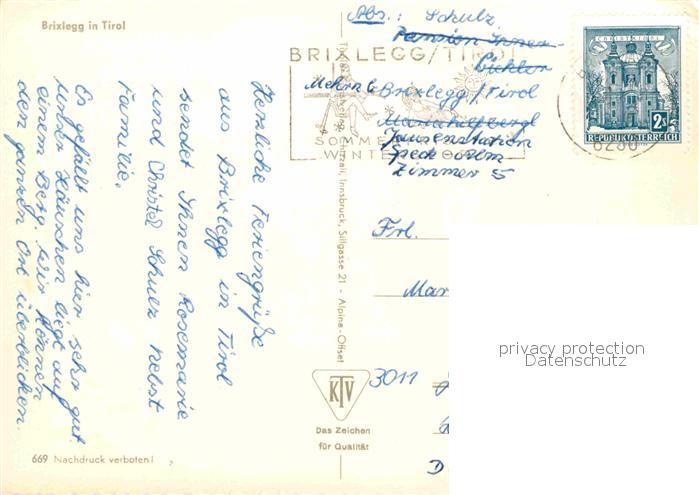 Brixlegg in Tirol
Herzliche Feriengrüße
aus Brixlegg in Tirol
sendet Ihnen Rosemarie
und Christel Schulz nebst
Familie.
Es gefällt uns hier sehr gut
unser Häuschen liegt auf
einem Berg. Wir können
den ganzen Ort überblicken.
669 Nachdruck verboten!
Chizzali, Innsbruck, Sillgasse 21 - Alpina-Offset
KTV
Das Zeichen
für Qualität
Abs.: Schulz
Pension Inner-
BRIXLEGG/TIROL
Brixlegg/Tirol
Jausenstation
Zimmer 5
SOMMER
WINTER
6230
CHRISTKINDL
2S
REPUBLIK ÖSTERREICH
Frl.
Mar
3011
D
privacy protection
Datenschutz